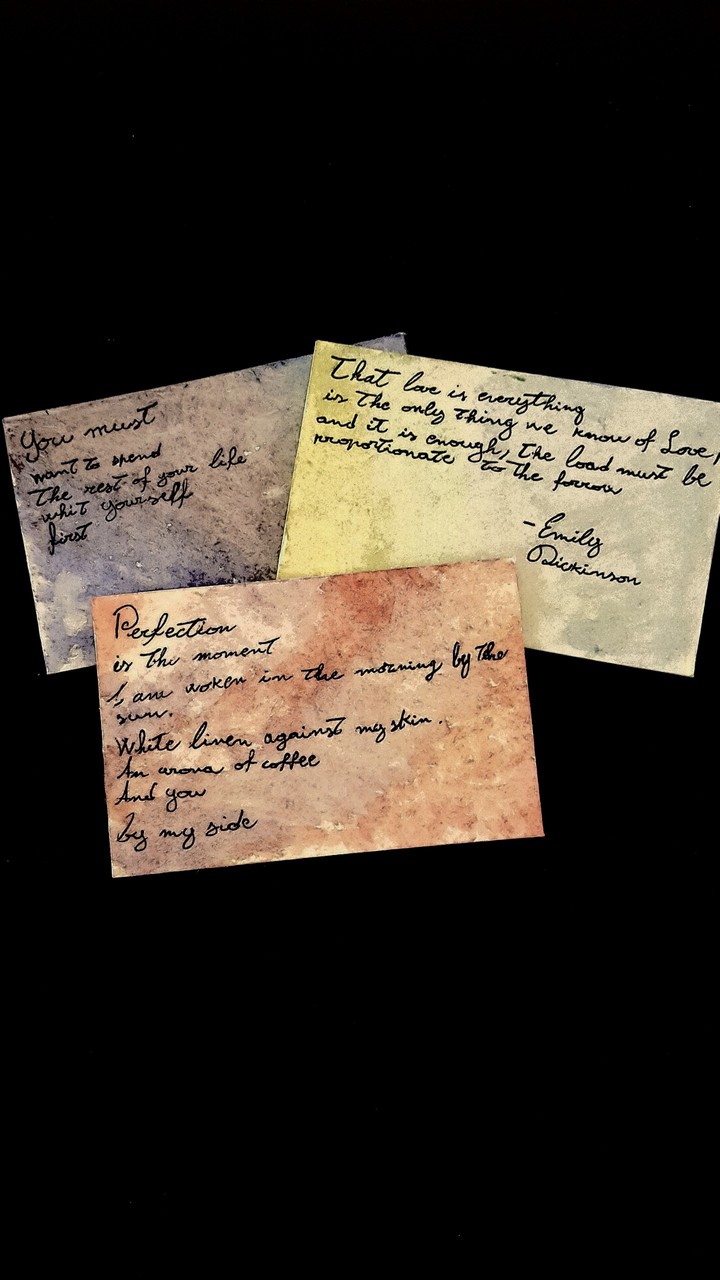 You must
want to spend
the rest of your life
whit yourself
first
That love is everything
is the only thing we know of Love,
and it is enough, the load must be
proportionate to the forrow
-Emily
Dickinson
Perfection
is the moment
I am woken in the morning by the
sun.
White linen against my skin.
An aroma of coffee
And you
by my side